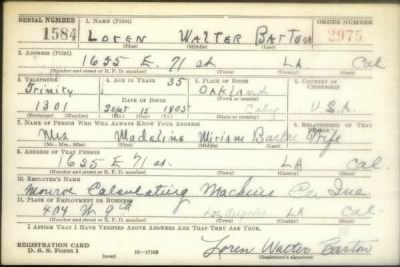 SERIAL NUMBER 1. NAME (Print) ORDER NUMBER
1584 LOREN WALTER BARTON 2975
(First) (Middle) (Last)
2. ADDRESS (Print)
1625 E. 71 st. LA Cal
(Number and street or R. F. D. number) (Town) (County) (State)
3. TELEPHONE 4. AGE IN YEARS 5. PLACE OF BIRTH 6. COUNTRY OF CITIZENSHIP
Trinity 35 OAKLAND
DATE OF BIRTH (Town or county)
1301 Sept 12 1905 U.S.A.
(Mo.) (Day) (Yr.) (State or country)
7. NAME OF PERSON WHO WILL ALWAYS KNOW YOUR ADDRESS 8. RELATIONSHIP OF THAT PERSON
Mrs Madeline Miriam Barton Wife
(Mr., Mrs., Miss) (First) (Middle) (Last)
9. ADDRESS OF THAT PERSON
1625 E 71 st. LA Cal.
(Number and street or R. F. D. number) (Town) (County) (State)
10. EMPLOYER'S NAME
Monroe Calculating Machine Co. Inc.
11. PLACE OF EMPLOYMENT OR BUSINESS
404 W 9th Los Angeles LA Cal
(Number and street or R. F. D. number) (Town) (County) (State)
I AFFIRM THAT I HAVE VERIFIED ABOVE ANSWERS AND THAT THEY ARE TRUE.
REGISTRATION CARD
D. S. S. Form 1 (over) Loren Walter Barton
(Registrant's signature)